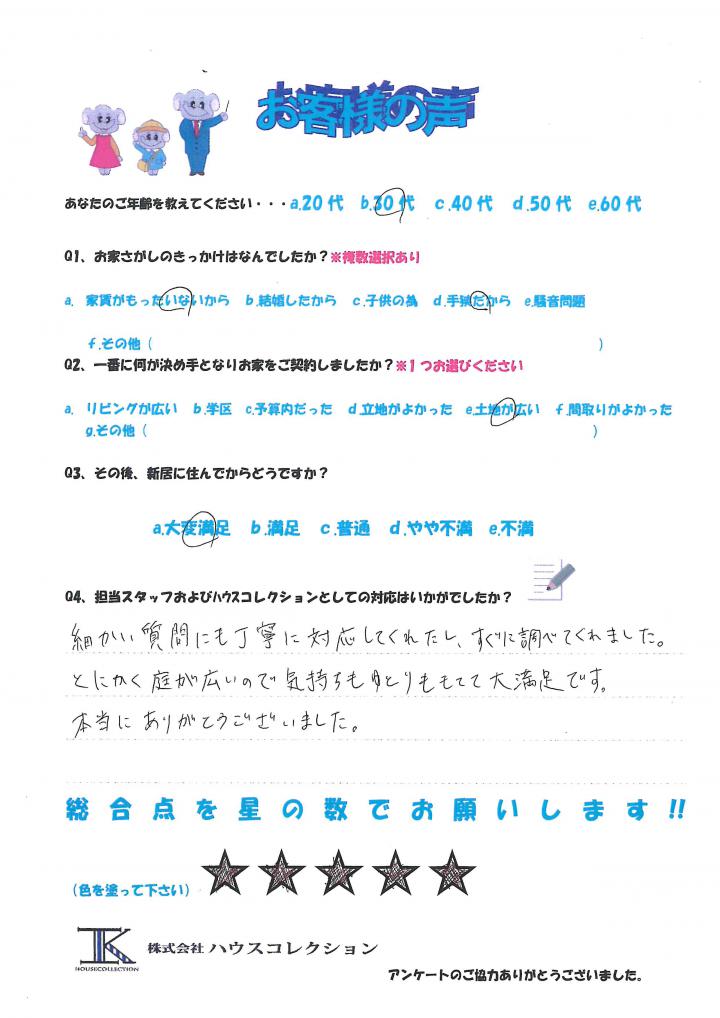 お客様の声
あなたのご年齢を教えてください・・・a.20代 b.30代 c.40代 d.50代 e.60代
Q1、お家さがしのきっかけはなんでしたか？※複数選択あり
a. 家賃がもったいないから b.結婚したから c.子供の為 d.手狭だから e.騒音問題
f.その他（ ）
Q2、一番に何が決め手となりお家をご契約しましたか？※1つお選びください
a. リビングが広い b.学区 c.予算内だった d.立地がよかった e.土地が広い f.間取りがよかった
g.その他（ ）
Q3、その後、新居に住んでからどうですか？
a.大変満足 b.満足 c.普通 d.やや不満 e.不満
Q4、担当スタッフおよびハウスコレクションとしての対応はいかがでしたか？
細かい質問にも丁寧に対応してくれたし、すぐに調べてくれました。
とにかく庭が広いので気持ちもゆとりももてて大満足です。
本当にありがとうございました。
総合点を星の数でお願いします!!
（色を塗って下さい）
HOUSECOLLECTION 株式会社 ハウスコレクション
アンケートのご協力ありがとうございました。